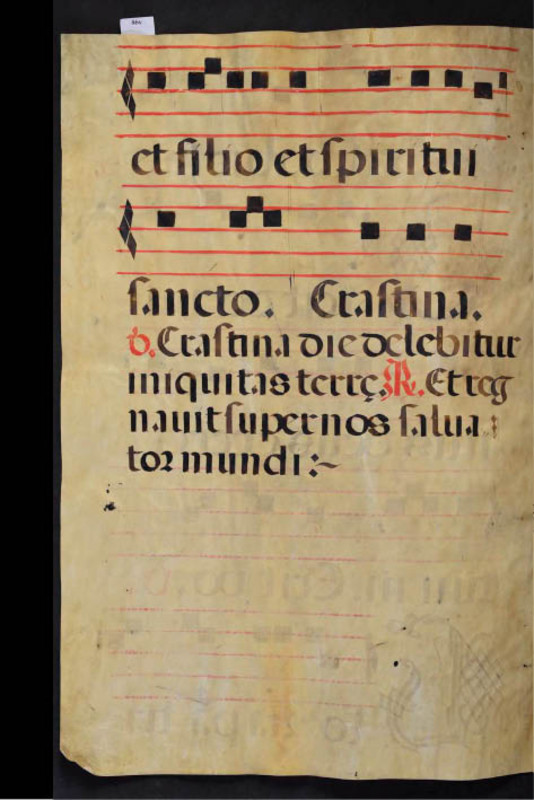 et filio et spiritui
sancto. Crastina.
V. Crastina die delebitur
iniquitas terrę. R. Et reg
nauit super nos salua
tor mundi :~